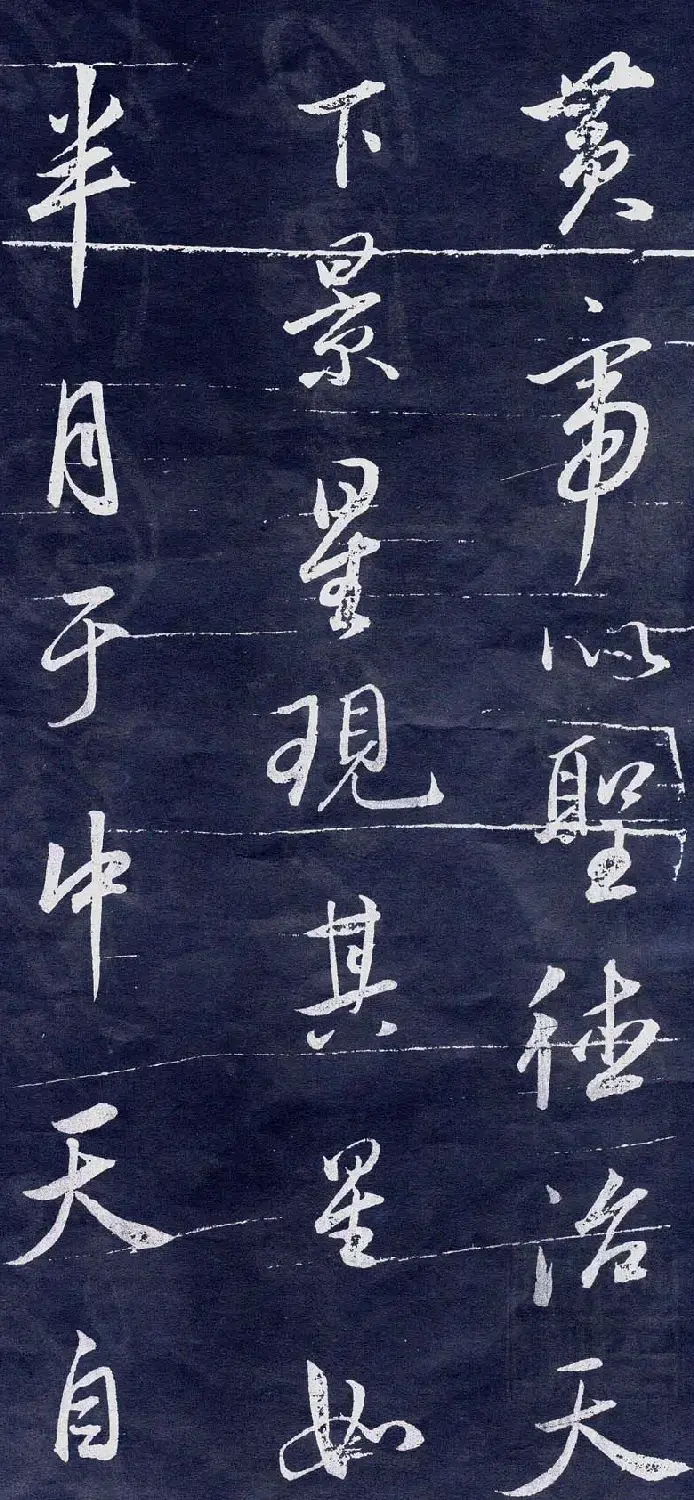 黄帝以聖德治天
下景星現其星如
半月于中天自